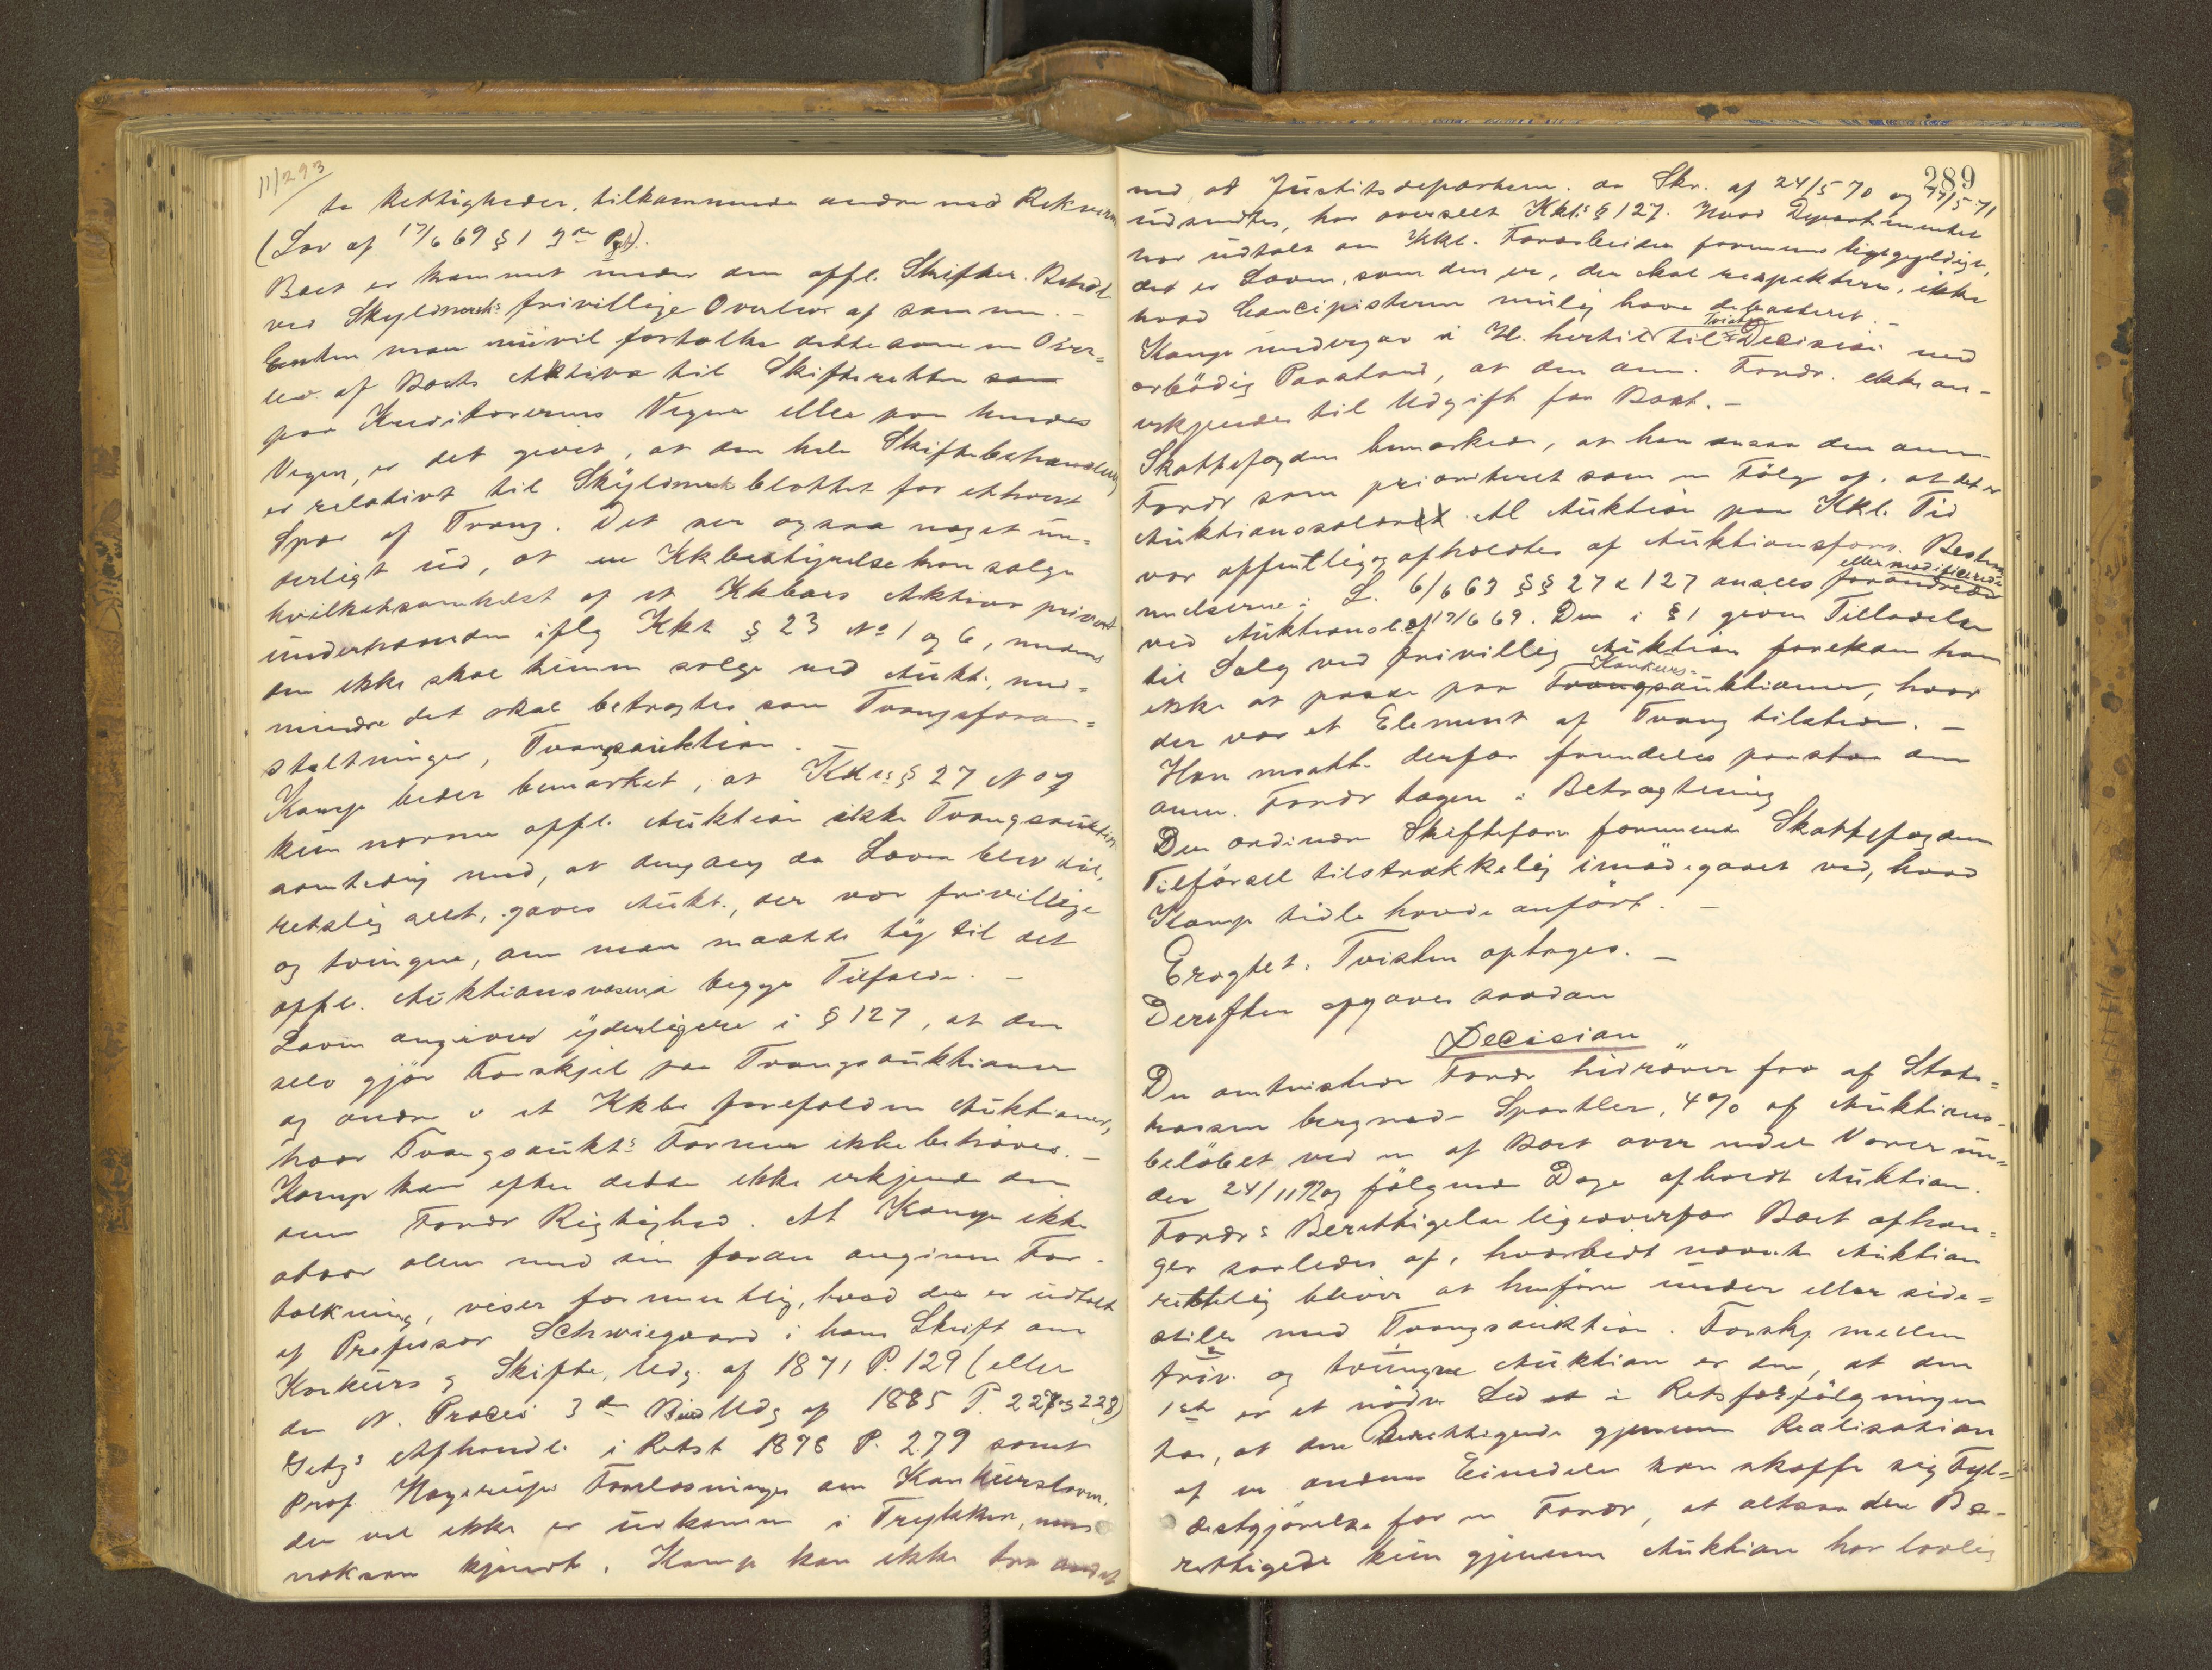 11/293
te Rettigheder, tilkommende andre end Rekvirn
(Lov af 17/6 69 § 1 9de Pkt).
Boet er kommet under den offl. Skifter. Behdl.
ved Skyldnerens frivillige Overlev. af samme. –
Enten man nu vil fortolke dette som en Over=
lev. af Boets Aktiva til Skifteretten som
paa Kreditorernes Vegne eller paa hendes
Vegne, er det givet, at den hele Skiftebehandling
er relativt til Skyldneren blottet for ethvert
Spor af Tvang. Det ser ogsaa noget un=
derligt ud, at en Kkbestyrelse kan sælge
hvilketsomhelst af et Kkboes Aktiva privat
underhaanden iflg Kkl § 23 No 1 og 6, medens
den ikke skal kunne sælge ved Aukt., med=
mindre det skal betragtes som Tvangsforan=
staltninger, Tvangsauktion.
Kamp beder bemærket, at Kkls § 27 No 7
kun nævner offl. Auktion ikke Tvangsauktion
samtidig med, at dengang da Loven blev til,
retslig seet, gaves Aukt., der var frivillige
og tvungne, om man maatte ty til det
offl. Auktionsvæsen i begge Tilfælde. –
Loven angiver yderligere i § 127, at den
selv gjør Forskjel paa Tvangsauktioner
og andre i et Kkbo forefaldne Auktioner,
hvor Tvangsaukts Former ikke behøves. –
Kamp kan efter dette ikke erkjende den
anm Fordr Rigtighed. At Kamp ikke
staar alene med sin foran angivne For-
tolkning, viser formentlig, hvad der er udtalt
af Professor Schweigaard i hans Skrift om
Konkurs og Skifte, Udg. af 1871 P. 129 (eller
den N. Proces 3die Bind Udg af 1885 P. 227 og 228)
Getz's Afhandl. i Retst 1878 P. 279 samt
Prof Hagerups Forelæsninger om Konkursloven,
der vel ikke er udkommen i Trykken, men
noksom kjendt. Kamp kan ikke tro andet
289
end at Justitsdepartem. da Skr. af 24/5 70 og 17/5 71
udsendtes, har overseet Kkls § 127. Hvad Departementet
har udtalt om Kkl. Forarbeider formenes ligegyldigt,
det er Loven, som den er, der skal respekteres, ikke
hvad Concipisterne mulig have debatteret. –
Tvisten
Kamp indlagde i H. hertil til Decision med
ærbødig Paastand, at den anm. Fordr. ikke an-
erkjendes til Udgift for Boet. –
Skattefogden bemærkede, at han ansaa den anm
Fordr som prioriteret som en Følge af, at det er
Auktionssalær. Al Auktion paa Kkl. Tid
var offentlig og afholdtes af Auktionsforv. Bestem
eller modificerede
melserne i L. 6/6 63 §§ 27 & 127 ansees forandrede
ved Auktionsl. af 17/6 69. Den i § 1 givne Tilladelse
til Salg ved frivillig Auktion forekom ham
Konkurs-
ikke at passe paa Tvangsauktioner, hvor
der var et Element af Tvang tilstede. –
Han maatte derfor fremdeles paastaa den
anm. Fordr tagen i Betragtning
Den ordinære Skifteforv formente Skattefogdens
Tilførsel tilstrækkelig imødegaaet ved, hvad
Kamp tidl. havde anført. –
Eragtet: Tvisten optages. –
Derefter afgaves saadan
Decision
Den omtvistede Fordr hidrører fra af Stats=
kassen beregnede Sportler, 4% af Auktions-
beløbet ved en af Boet over endel Varer un=
der 24/11 92 og følgende Dage afholdt Auktion.
Fordrs Berettigelse ligeoverfor Boet afhæn=
ger saaledes af, hvorvidt nævnte Auktion
rettelig bliver at henføre under eller side=
stille med Tvangsauktion. Forskj mellem
friv. og tvungne Auktion er den, at den
1ste er et nødv Led i Retsforfølgningen
for, at den Berettigede gjennem Realisation
af en andens Eiendele kan skaffe sig Fyl=
destgjørelse for en Fordr, at altsaa den Be-
rettigede kun gjennem Auktion har lovlig